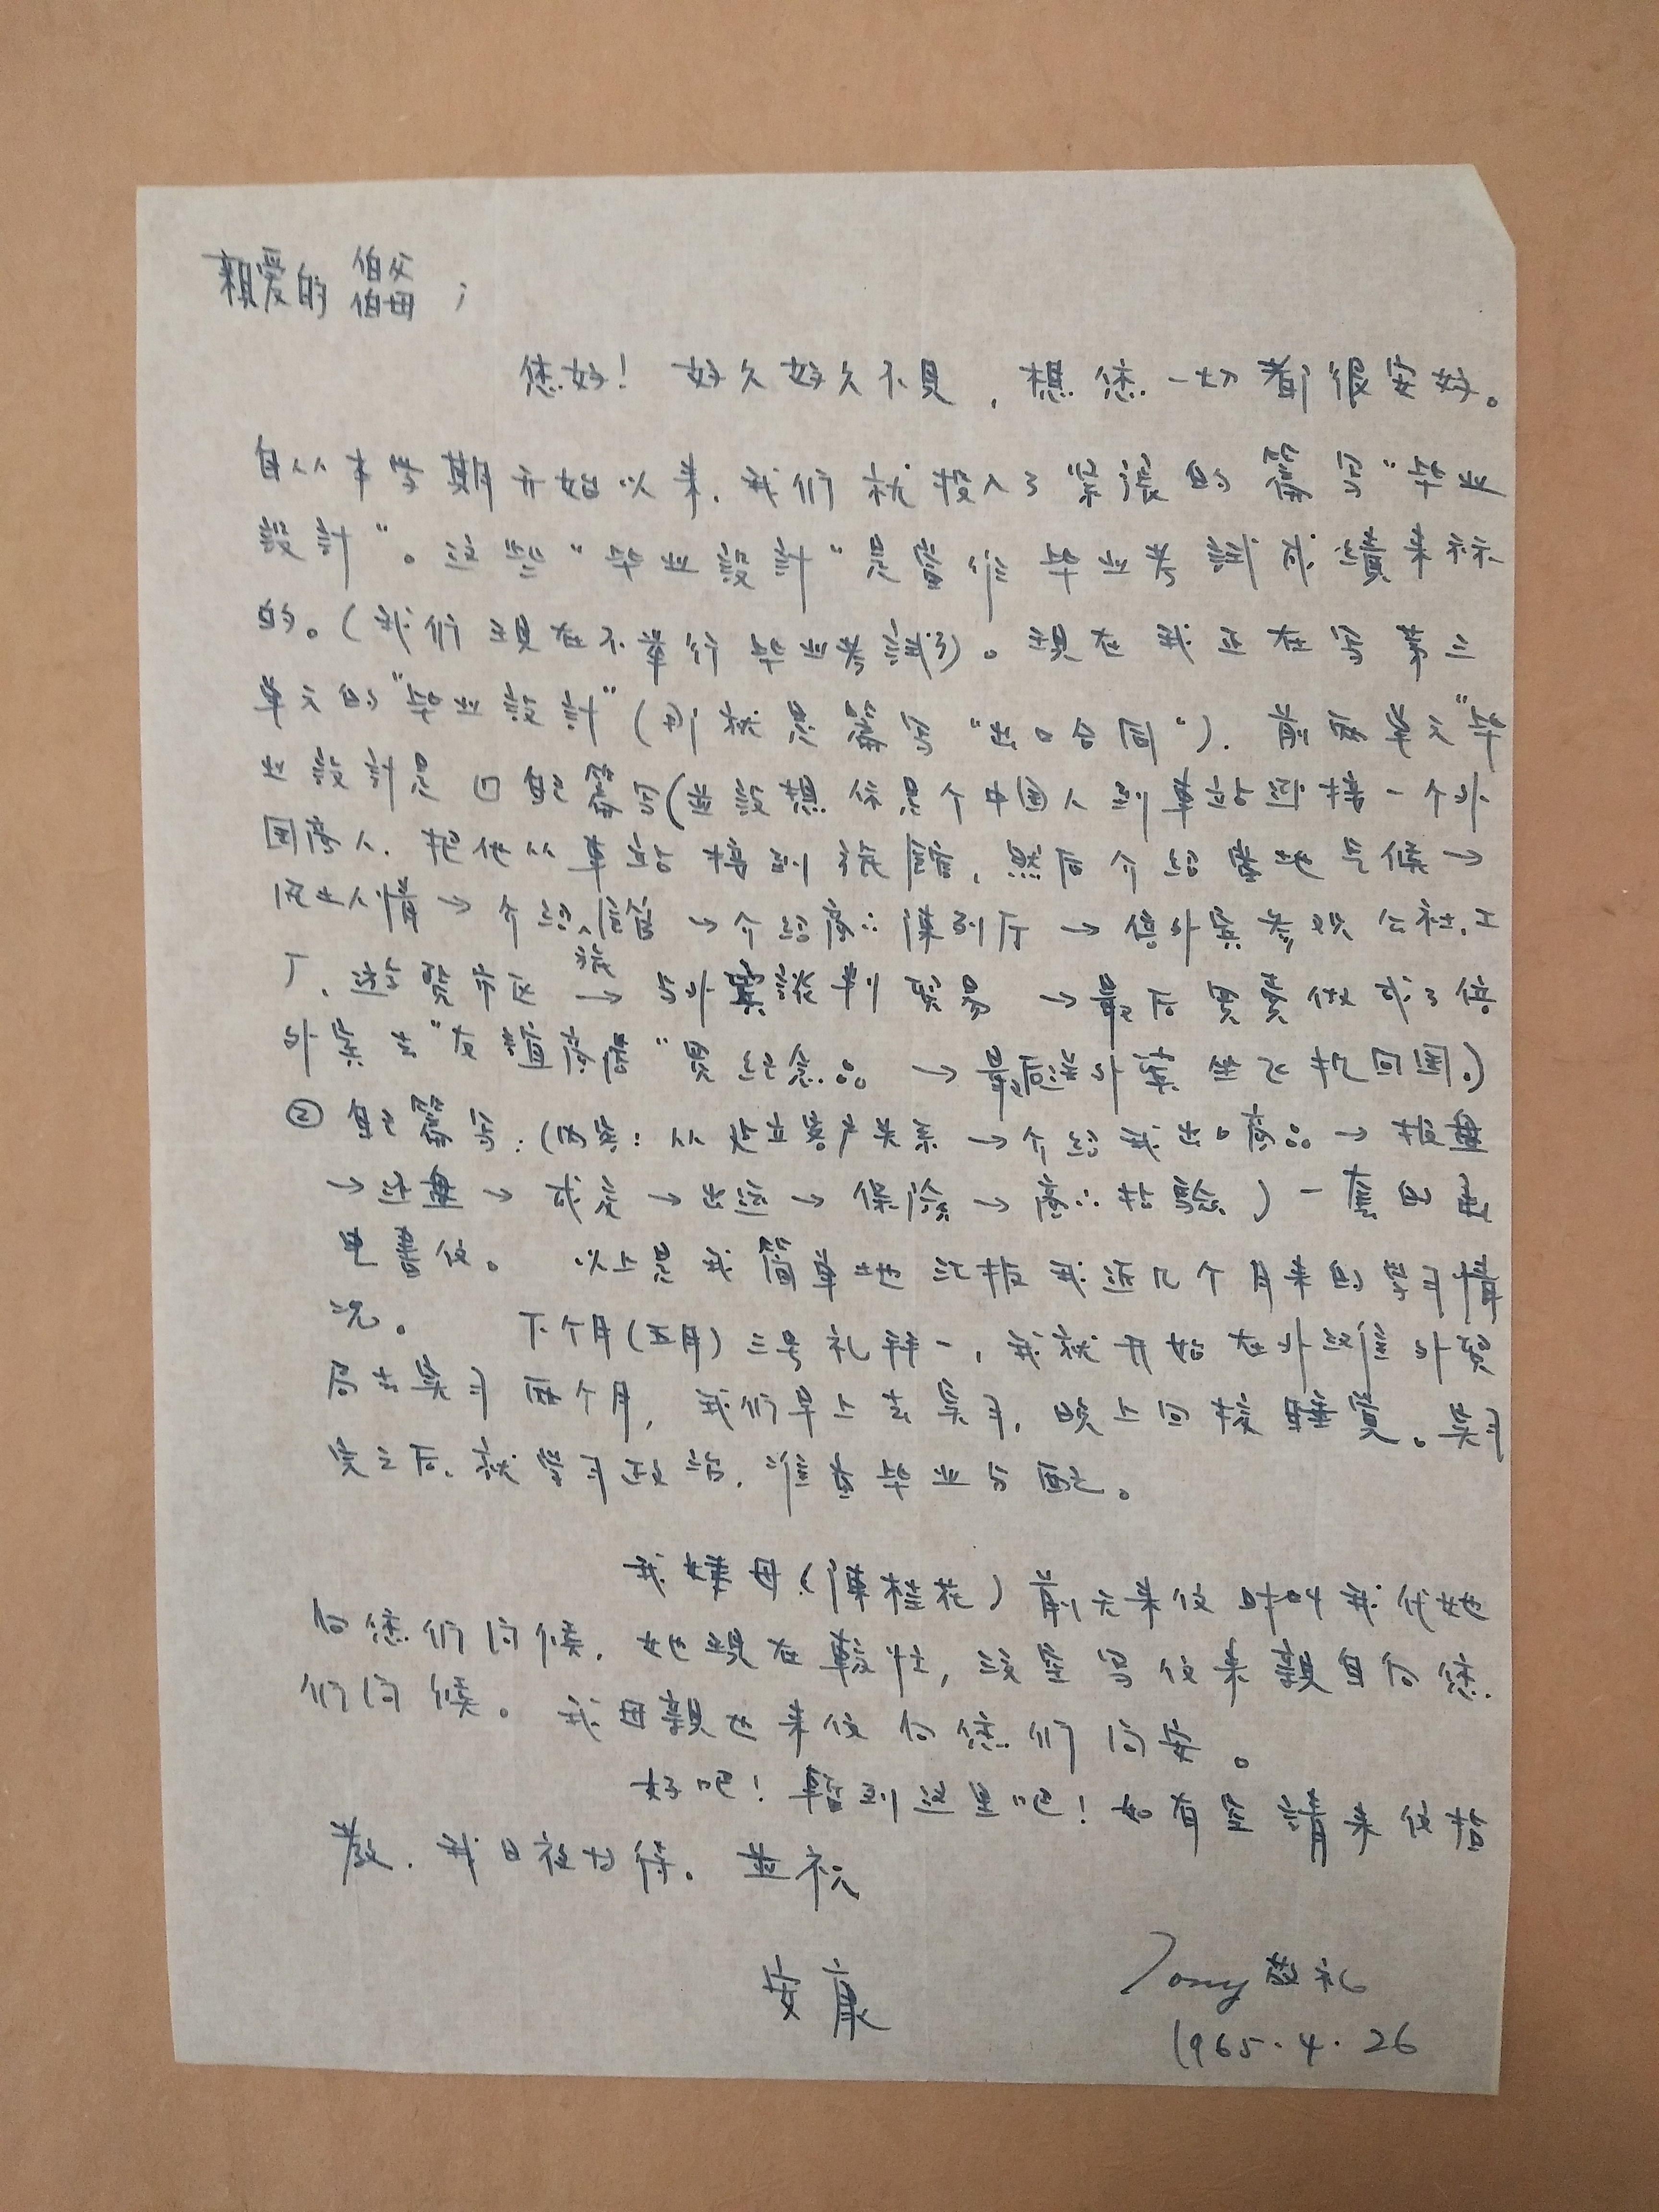 親爱的 伯父 伯母；
您好！好久好久不見，想您一切都很安好。
自从本学期开始以来，我们就投入了紧張的篇写“毕业
設計”。这些“毕业設計”是當作毕业考試成績来
的。（我们現在不举行毕业考試了）。現在我正在写第三
单元的“毕业設計”（即就是篇写“出口合同”）．前两单元“毕
业設計是 自己篇写（並設想你是个中国人到車站迎接一个外
国商人，把他从車站接到旅館，然后介绍當地气候→
风土人情→介绍旅館→介绍商品陳列厅→偕外宾参观公社，工
厂，遊覽市区→与外宾談判貿易→最后買賣做成了偕
外宾去“友誼商店”買纪念品→最后送外宾坐飞机回国。）
② 自己篇写：（内容：从建立客户关系→介绍我出口商品→报盘
→还盘→成交→出运→保险→商品检驗）一套的
电書信。 以上是我简单地汇报我近几个月来的学习情
况。 下个月（五月）三号礼拜一，我就开始在外灘外贸
局去实习两个月，我们早上去实习，晚上回校睡覚。实习
完之后，就学习政治，准备毕业分配。
我嬸母（陳桂花）前天来信时叫我代她
向您们问候，她現在較忙，没空写信来親自向您
们问候。我母親也来信向您们问安。
好吧！暫到这里吧！如有空請来信指
教，我日夜力待。並祝
安康
Tony 敬礼
1965.4.26